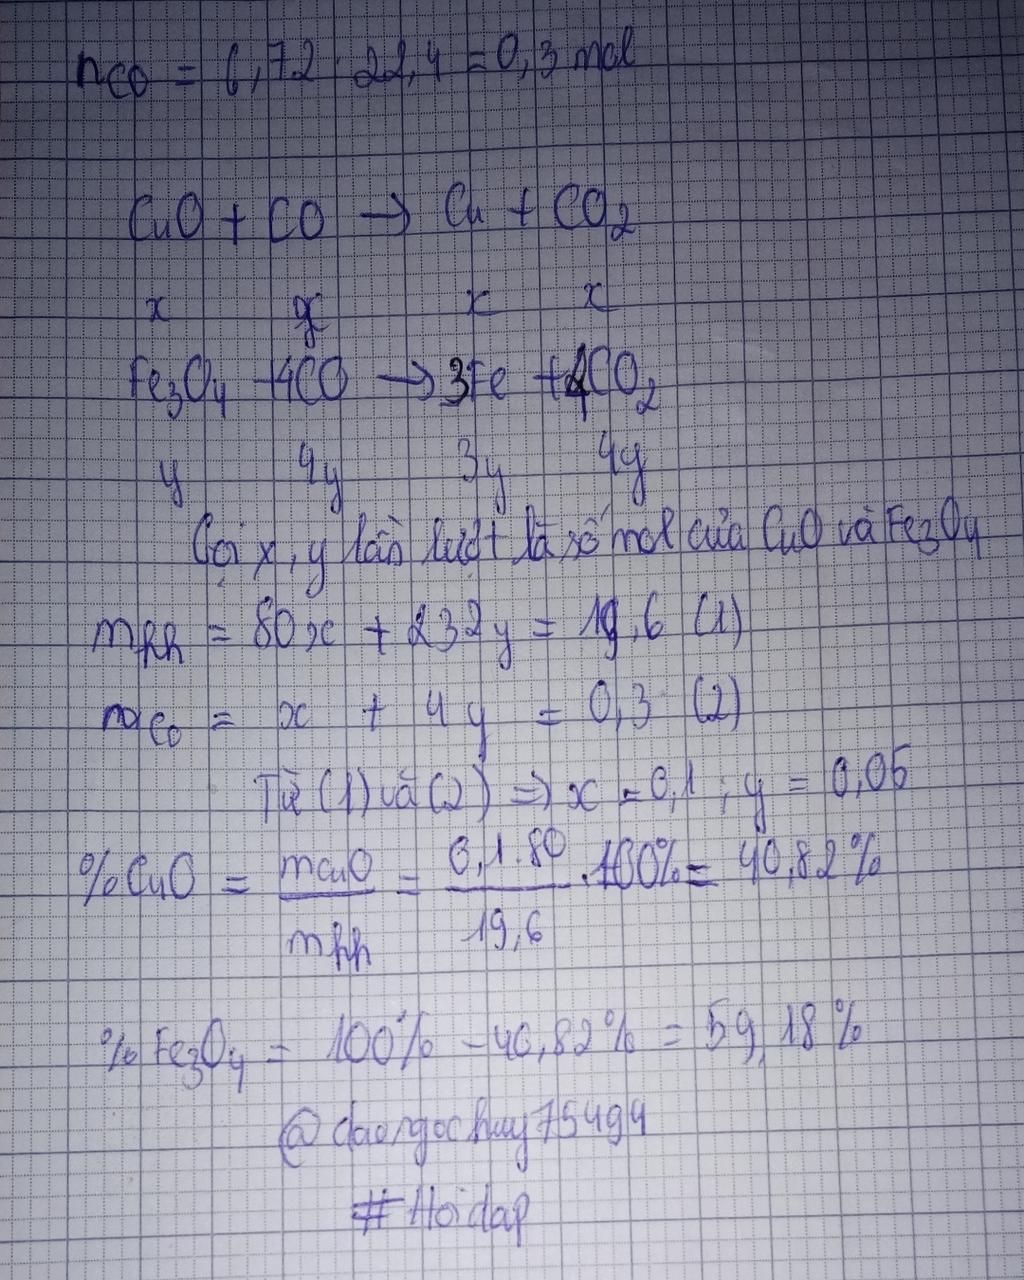 nCO = 6,72 : 22,4 = 0,3 mol
CuO + CO → Cu + CO2
x x x x
Fe3O4 + 4CO → 3Fe + 4CO2
y 4y 3y 4y
Gọi x, y lần lượt là số mol của CuO và Fe3O4
mhh = 80x + 232y = 19,6 (1)
nCO = x + 4y = 0,3 (2)
Từ (1) và (2) => x = 0,1 ; y = 0,05
%CuO = mCuO / mhh = 0,1.80 / 19,6 .100% = 40,82%
%Fe3O4 = 100% - 40,82% = 59,18%
@daongochuy75494
#Hoidap